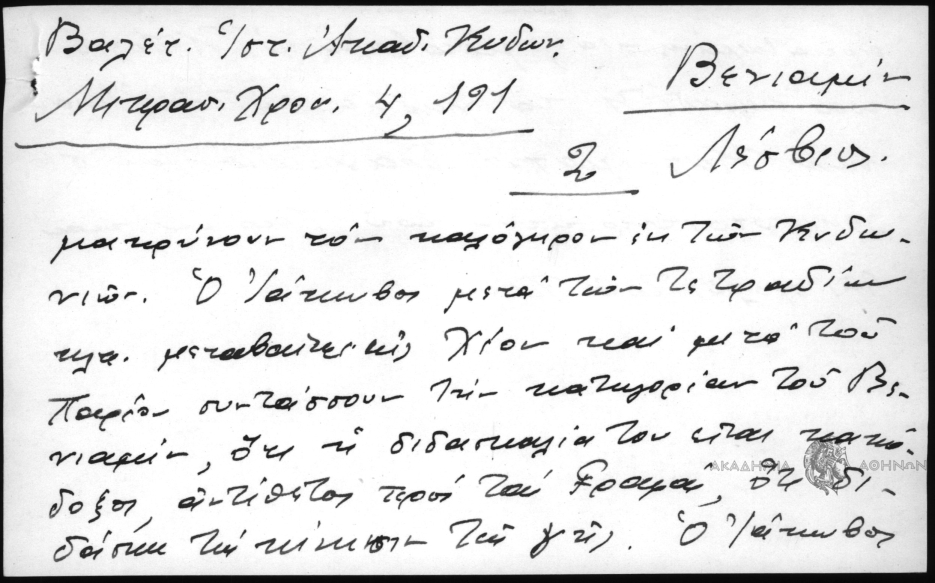 Βαλέτ. Ἱστ. Ἀκαδ. Κυδων.
Μικρασ. Χρον. 4, 191
Βενιαμὶν
Λέσβιος.
2
μακρύνουν τὸν καλόγηρον ἐκ τῶν Κυδω-
νιῶν. Ὁ Ἰάκωβος μετὰ τῶν τετραδίων
κλπ. μεταβαίνει εἰς Χίον καὶ μετὰ τοῦ
Παρίου συντάσσουν τὴν κατηγορίαν τοῦ Βε-
νιαμίν, ὅτι ἡ διδασκαλία του εἶναι κακό-
δοξος, ἀντίθετος πρὸς τὰς Γραφάς, ὅτι δι-
δάσκει τὴν κίνησιν τῆς γῆς. Ὁ Ἰάκωβος
ΑΚΑΔΗΜΙΑ ΑΘΗΝΩΝ